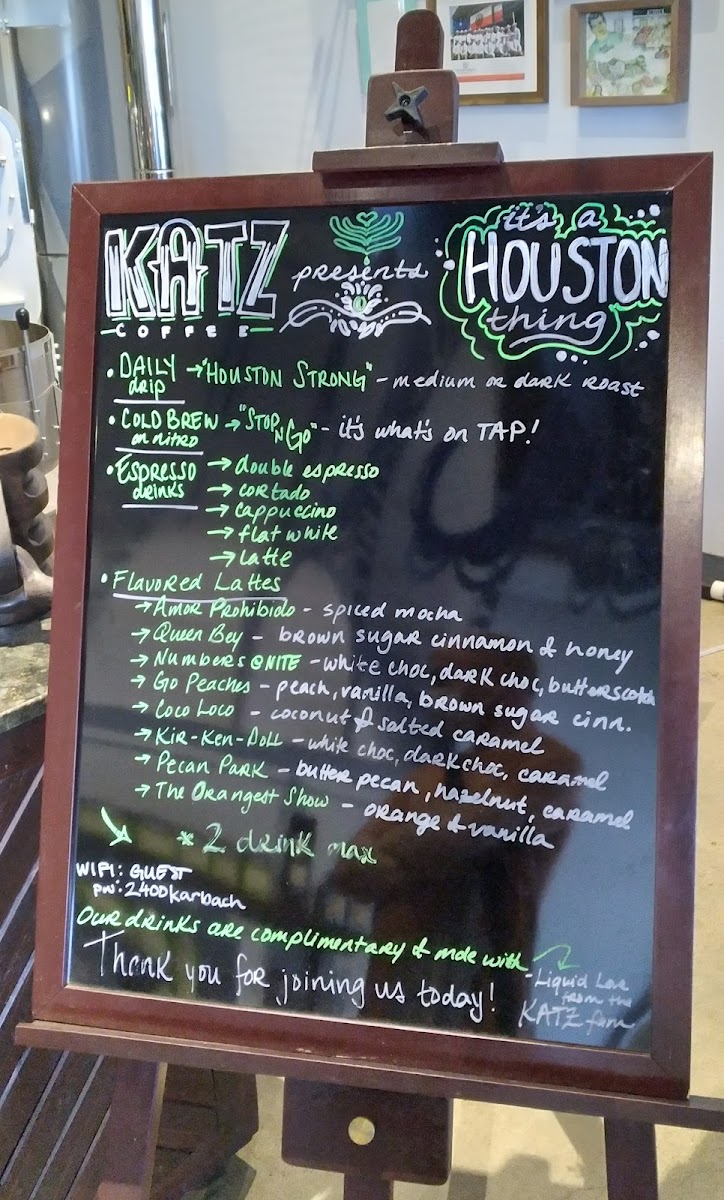 KATZ
COFFEE
presents
it's a
HOUSTON
thing
• DAILY drip → "HOUSTON STRONG" - medium or dark roast
• COLD BREW on nitro → "STOP N GO" - it's what's on TAP!
• ESPRESSO drinks → double espresso
→ cortado
→ cappuccino
→ flat white
→ latte
• FLAVORED LATTES
→ AMOR PROHIBIDO - spiced mocha
→ QUEEN BEY - brown sugar cinnamon & honey
→ NUMBERS @ NITE - white choc, dark choc, butterscotch
→ GO PEACHES - peach, vanilla, brown sugar cinn.
→ COCO LOCO - coconut & salted caramel
→ KIR-KEN-DOLL - white choc, dark choc, caramel
→ PECAN PARK - butter pecan, hazelnut, caramel
→ THE ORANGEST SHOW - orange & vanilla
* 2 drink max
WIFI: GUEST
pw: 2400Karbach
Our drinks are complimentary & made with
- Liquid Love
from the
KATZ fam
Thank you for joining us today!